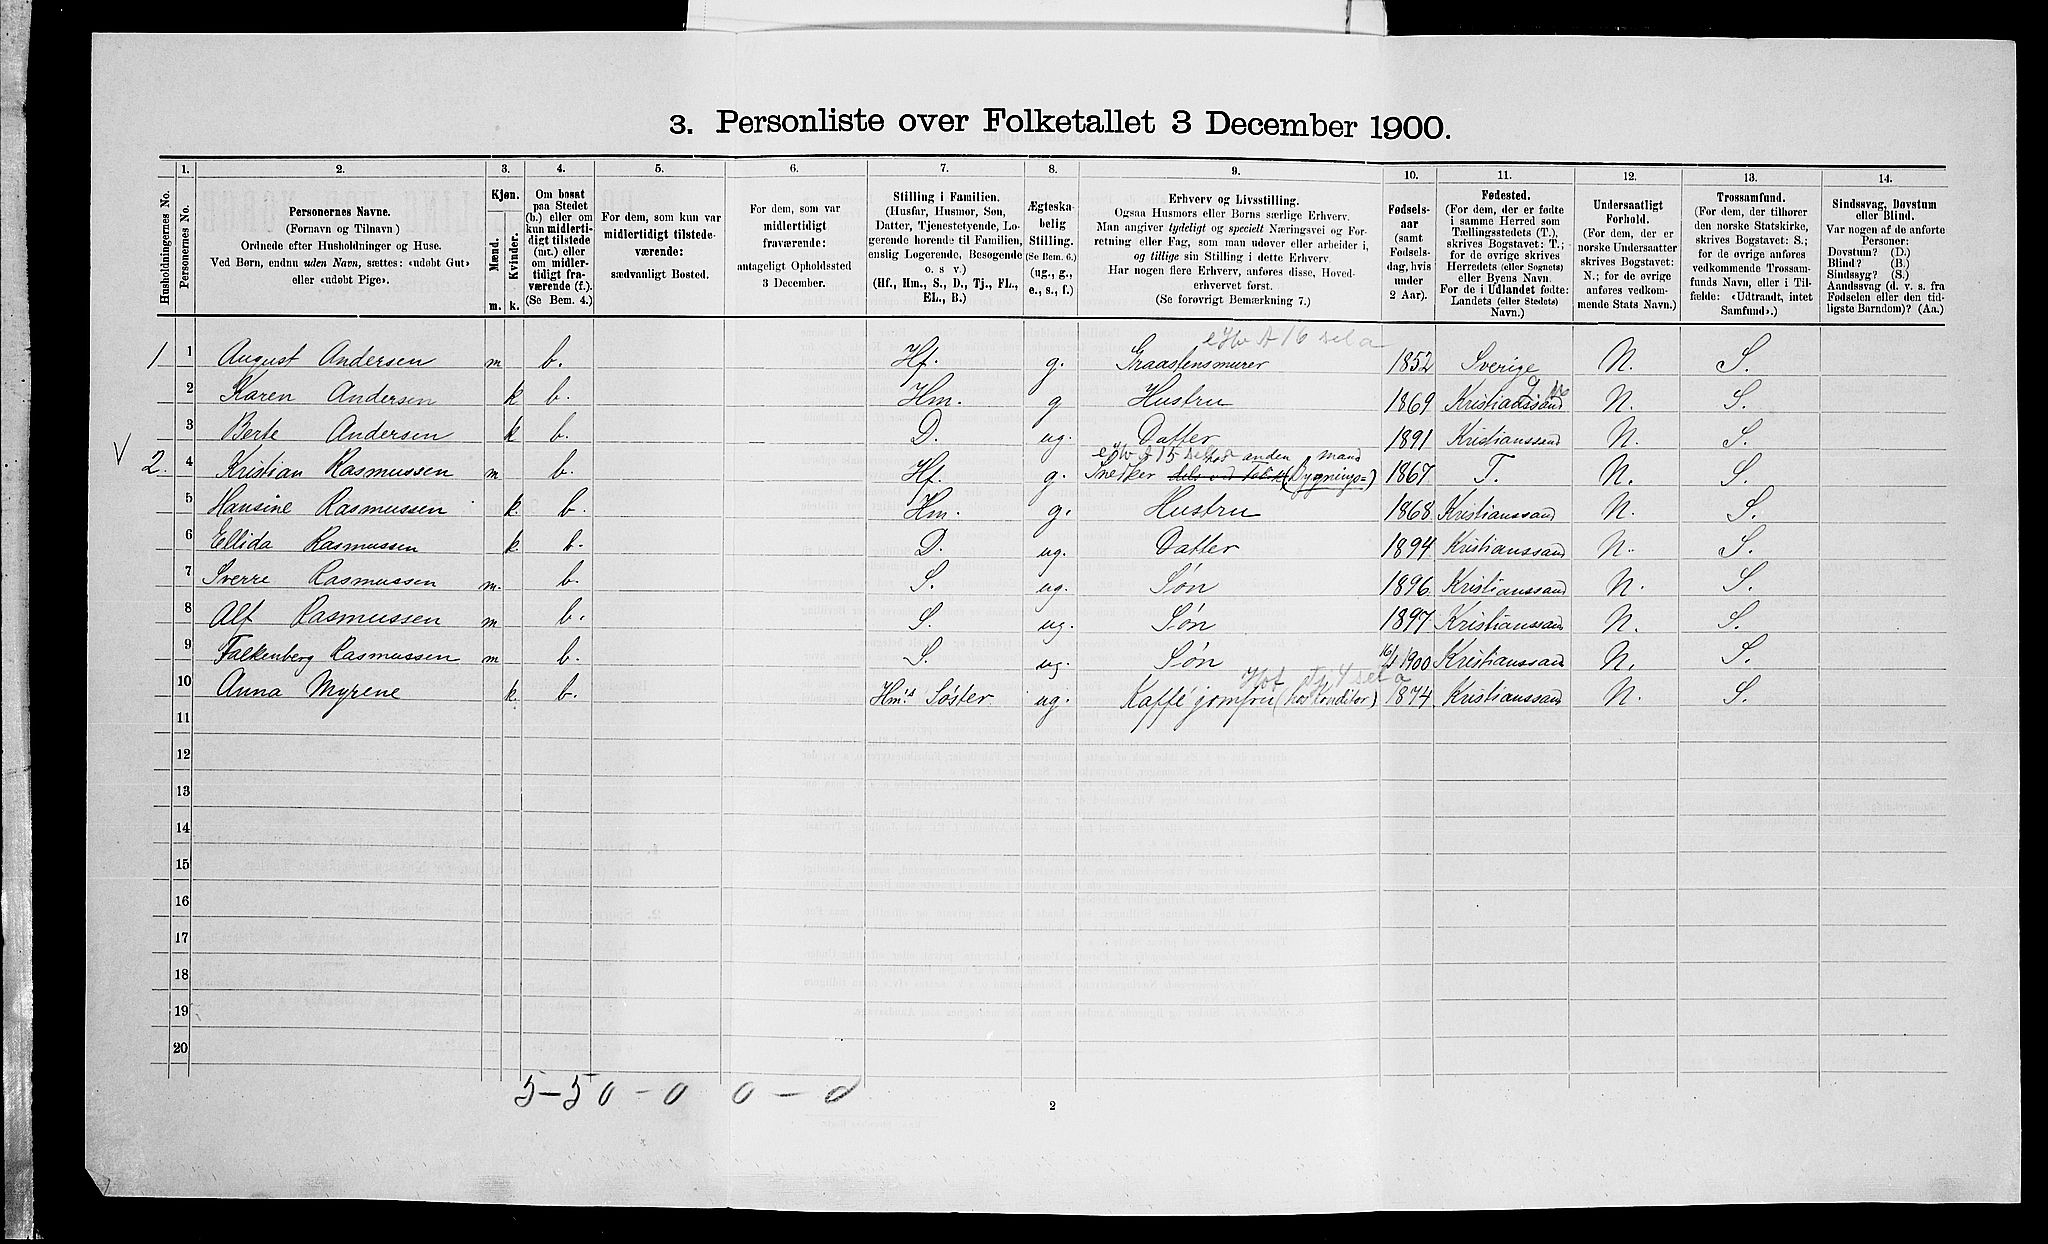 3. Personliste over Folketallet 3 December 1900.
Husholdningernes No.
1. Personernes No.
2. Personernes Navne. (Fornavn og Tilnavn) Ordnede efter Husholdninger og Huse. Ved Børn, endnu uden Navn, sættes: «udøbt Gut» eller «udøbt Pige».
3. Kjøn. Mænd. m. Kvinder. k.
4. Om bosat paa Stedet (b.) eller om kun midlertidigt tilstede (mt.) eller om midlertidigt fraværende (f.). (Se Bem. 4.)
5. For dem, som kun var midlertidigt tilstedeværende: sædvanligt Bosted.
6. For dem, som var midlertidigt fraværende: antageligt Opholdssted 3 December.
7. Stilling i Familien. (Husfar, Husmor, Søn, Datter, Tjenestetyende, Logerende hørende til Familien, enslig Logerende, Besøgende o. s v.) (Hf., Hm., S., D., Tj., FL., EL., B.)
8. Ægteskabelig Stilling. (Se Bem. 6.) (ug., g., e., s., f.)
9. Erhverv og Livsstilling. Ogsaa Husmors eller Børns særlige Erhverv. Man angiver tydeligt og specielt Næringsvei og Forretning eller Fag, som man udøver eller arbeider i, og tillige sin Stilling i dette Erhverv. Har nogen flere Erhverv, anføres disse, Hovederhvervet først. (Se forøvrigt Bemærkning 7.)
10. Fødselsaar (samt Fødselsdag, hvis under 2 Aar).
11. Fødested. (For dem, der er fødte i samme Herred som Tællingsstedets (T.), skrives Bogstavet: T.; for de øvrige skrives Herredets (eller Sognets) eller Byens Navn. For de i Udlandet fødte: Landets (eller Stedets) Navn.)
12. Undersaatligt Forhold. (For dem, der er norske Undersaatter skrives Bogstavet: N.; for de øvrige anføres vedkommende Stats Navn.)
13. Trossamfund. (For dem, der tilhører den norske Statskirke, skrives Bogstavet: S.; for de øvrige anføres vedkommende Trossamfunds Navn, eller i Tilfælde: «Udtraadt, intet Samfund».)
14. Sindssvag, Døvstum eller Blind. Var nogen af de anførte Personer: Døvstum? (D.) Blind? (B.) Sindssyg? (S.) Aandssvag (d. v. s. fra Fødselen eller den tidligste Barndom)? (Aa.)
1 1 August Andersen m b. Hf. g. Graastensmurer 1852 Sverige N. S.
2 Karen Andersen k b. Hm. g Hustru 1869 Kristianssand N. S.
3 Berte Andersen k b. D. ug. Datter 1891 Kristianssand N. S.
V 2. 4 Kristian Rasmussen m b. Hf. g. Snedker hos anden mand (Bygnings=) 1867 T. N. S.
5 Hansine Rasmussen k b. Hm. g. Hustru 1868 Kristianssand N. S.
6 Ellida Rasmussen k b. D. ug. Datter 1894 Kristianssand N. S.
7 Sverre Rasmussen m. b. S. ug. Søn 1896 Kristianssand N. S.
8 Alf Rasmussen m b. S. ug. Søn 1897 Kristianssand N. S.
9 Falkenberg Rasmussen m b. S. ug. Søn 1900 Kristianssand N. S.
10 Anna Myrene k. b. Hm:s Søster ug. Kaffé jomfru (hos Konditor) 1874 Kristianssand N. S.
11
12
13
14
15
16
17
18
19
20
5-5 0 - 0 0 - 0
2